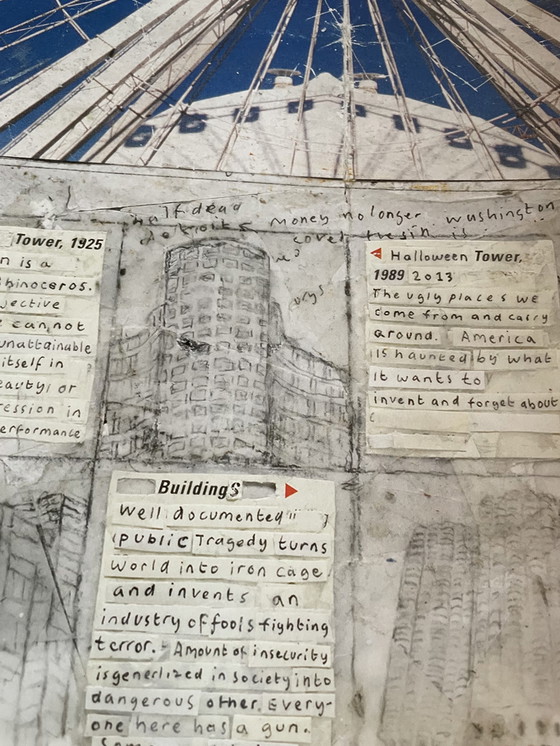 half dead
detroits
money no longer washington
cover is
Tower, 1925
n is a
hinoceros.
jective
e cannot
unattainable
itself in
eauty or
ression in
erformante
Halloween Tower,
1989 2013
The ugly places we
come from and carry
around. America
is haunted by what
it wants to
invent and forget about
Buildings
Well documented
public Tragedy turns
world into iron cage
and invents an
industry of fools fighting
terror. Amount of insecurity
is generlized in society into
dangerous other. Every-
one here has a gun.